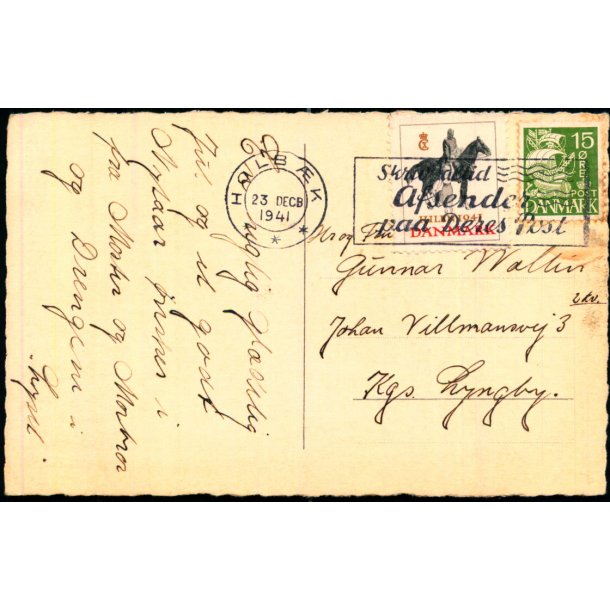 HALBÆK
23 DECB
1941
Skriv altid
Afsender
paa Deres Post
JULEN 1941
DANMARK
15
ØRE
POST
DANMARK
Hr og Fru
Gunnar Wollin
2 Sv.
Johan Villmansvej 3
Kgs. Lyngby.
rigtig Glædelig
Jul og et godt
Nytaar ønskes i
fra Moster og Morbror
og Drengene i